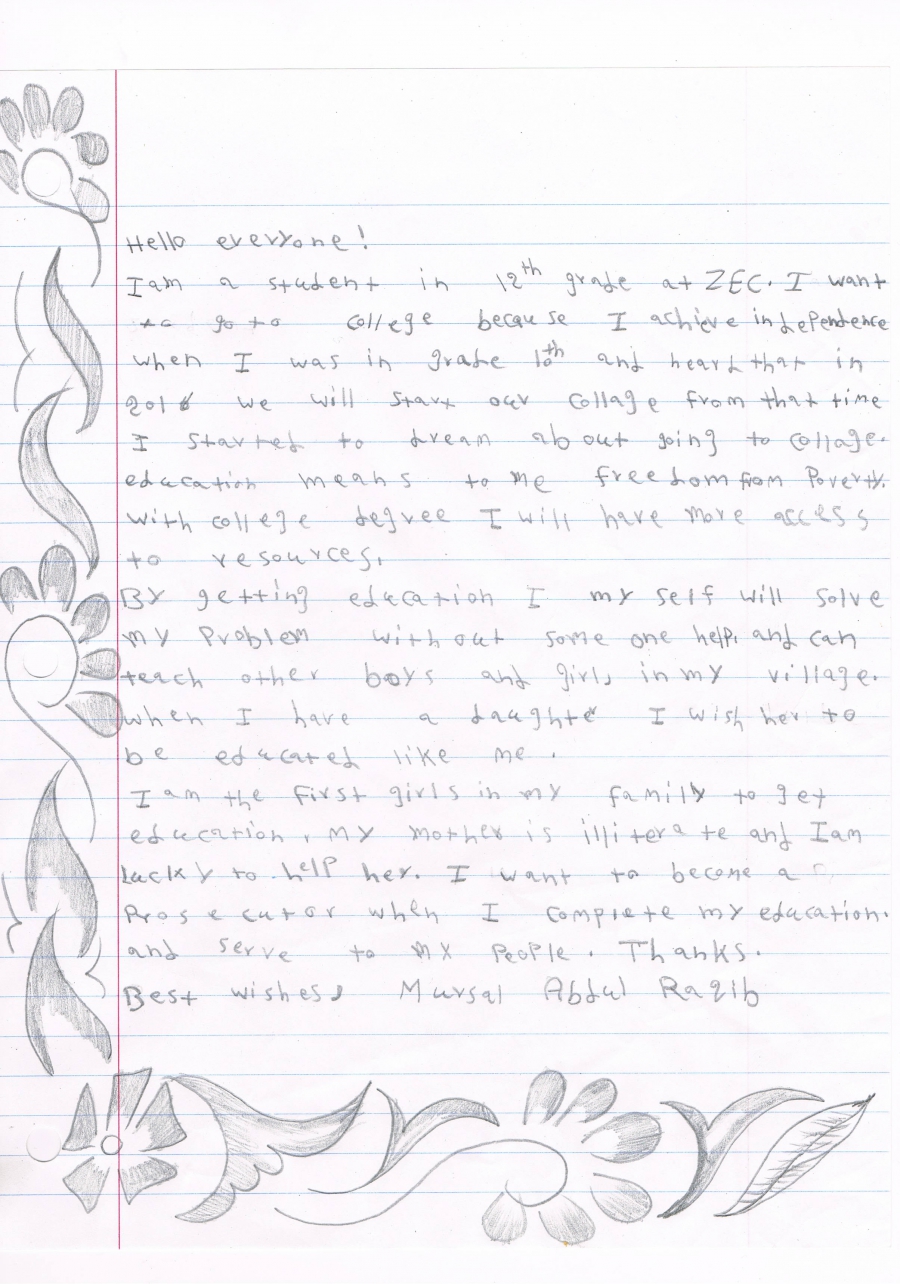 Hello everyone!
I am a student in 12th grade at ZEC. I want
to go to college because I achieve independence
when I was in grade 10th and heard that in
2016 we will start our collage from that time
I started to dream about going to collage.
education means to me freedom from Poverty.
with college degree I will have more access
to resources.
By getting education I my self will solve
my Problem without some one help. and can
teach other boys and girls in my village.
when I have a daughter I wish her to
be educated like me.
I am the first girls in my family to get
education, my mother is illiterate and I am
lucky to help her. I want to become a
Prosecutor when I complete my education.
and serve to my People. Thanks.
Best wishes, Mursal Abdul Raqib